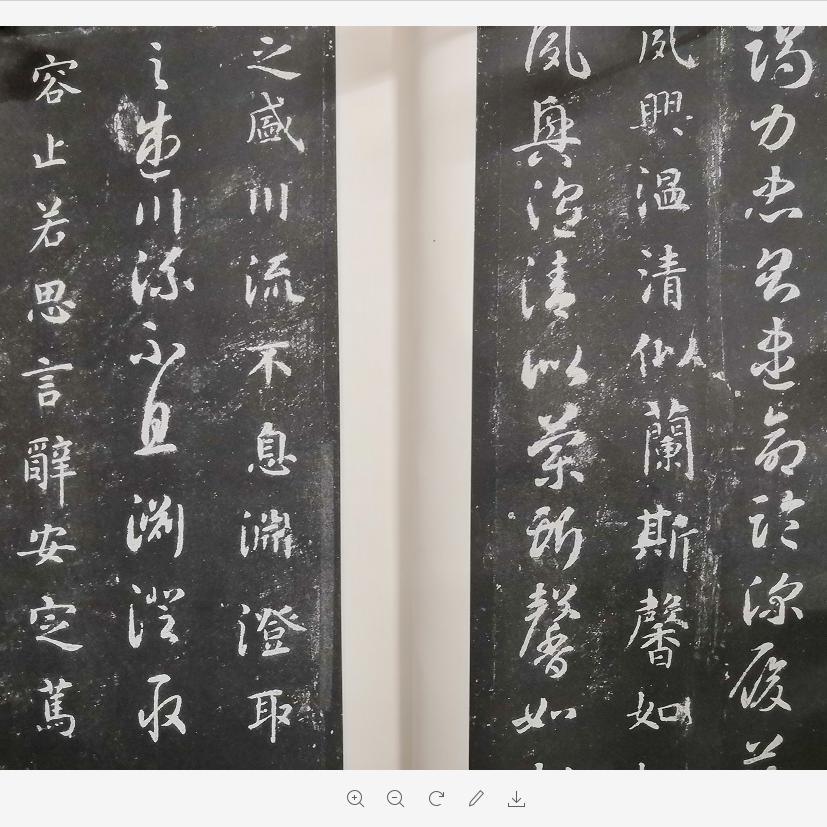 竭力忠則盡命臨深履薄
夙興温清似蘭斯馨如
夙興温清似蘭斯馨如
之盛川流不息淵澄取
之盛川流不息淵澄取
容止若思言辭安定篤